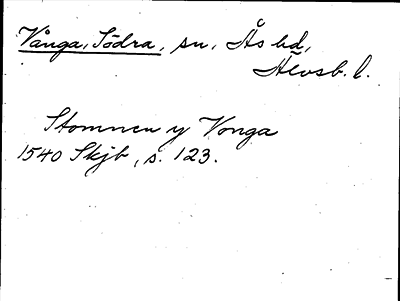 Vånga, Södra, sn, Ås hd,
Älvsb. l.
Stomnen y Vonga
1540 Skjb, s. 123.